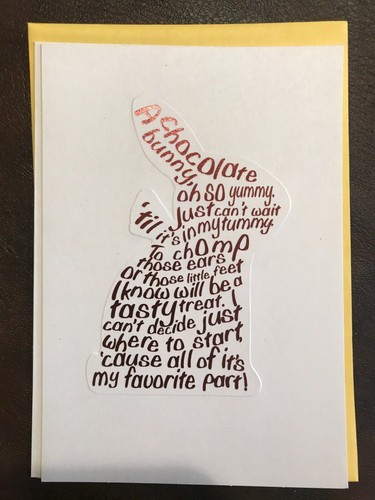 A chocolate
bunny,
oh so yummy.
Just can't wait
'til it's in my tummy.
To chomp
those ears
or those little feet
I know will be a
tasty treat. I
can't decide just
where to start,
'cause all of it's
my favorite part!